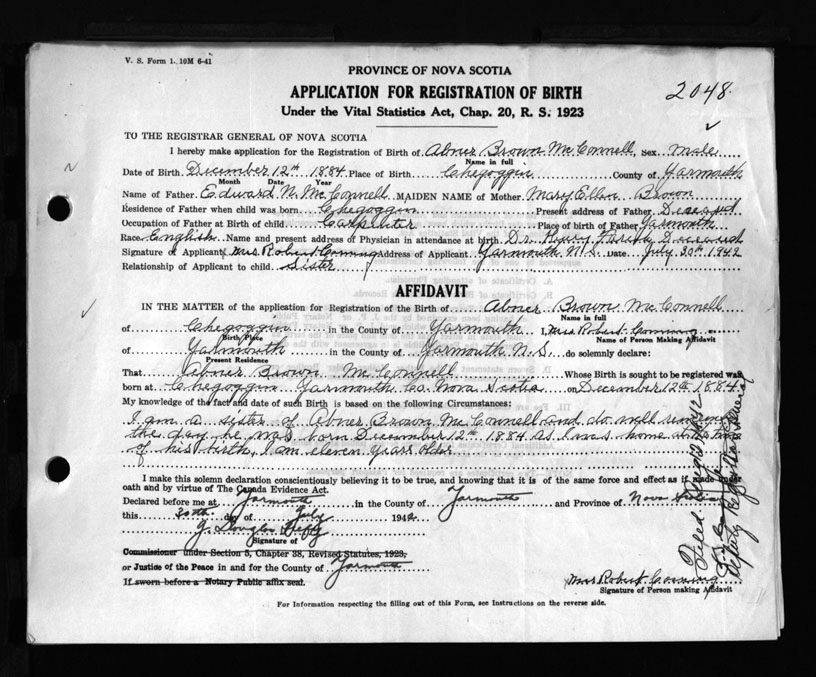 V. S. Form 1. 10M 6-41
PROVINCE OF NOVA SCOTIA
APPLICATION FOR REGISTRATION OF BIRTH
2048
Under the Vital Statistics Act, Chap. 20, R. S. 1923
TO THE REGISTRAR GENERAL OF NOVA SCOTIA
I hereby make application for the Registration of Birth of Abner Brown McConnell, Sex Male
Name in full
Date of Birth December 12th 1884 Place of Birth Chegoggin County of Yarmouth
Month Date Year
Name of Father Edward N. McConnell MAIDEN NAME of Mother Mary Ellen Brown
Residence of Father when child was born Chegoggin Present address of Father Diseased
Occupation of Father at Birth of child Carpenter Place of birth of Father Yarmouth
Race English Name and present address of Physician in attendance at birth Dr. Deceased
Signature of Applicant Mrs Robert Corning Address of Applicant Yarmouth N.S. Date July 30th 1942
Relationship of Applicant to child Sister
AFFIDAVIT
IN THE MATTER of the application for Registration of the Birth of Abner Brown McConnell
Name in full
of Chegoggin in the County of Yarmouth I, Mrs Robert Corning
Birth Place Name of Person Making Affidavit
of Yarmouth in the County of Yarmouth N.S. do solemnly declare:
Present Residence
That Abner Brown McConnell Whose Birth is sought to be registered was
born at Chegoggin Yarmouth Co. Nova Scotia on December 12th 1884
My knowledge of the fact and date of such Birth is based on the following Circumstances:
I am a sister of Abner Brown McConnell and do well remember
the day he was born December 12th 1884 as I was home at the time
of his birth, I am eleven years older
I make this solemn declaration conscientiously believing it to be true, and knowing that it is of the same force and effect as if made under
oath and by virtue of The Canada Evidence Act.
Declared before me at Yarmouth in the County of Yarmouth and Province of Nova Scotia
this 30th day of July 1942
J. Douglas
Signature of
Commissioner under Section 5, Chapter 38, Revised Statutes, 1923,
or Justice of the Peace in and for the County of Yarmouth
If sworn before a Notary Public affix seal.
Mrs Robert Corning
Signature of Person making Affidavit
For Information respecting the filling out of this Form, see Instructions on the reverse side.
Filed 1942
Deputy Registrar General